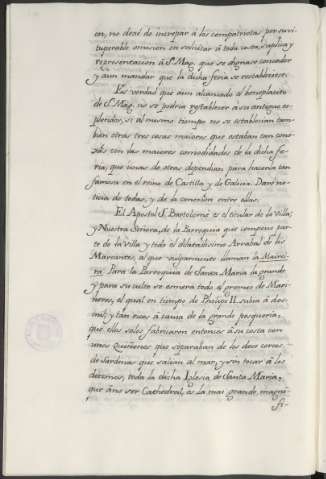 con, no dexé de increpar á los compatriotas por su vi-
tuperable omision en solicitar á toda costa, suplica y
representacion á S. Mag. que se dignase conceder
y aun mandar que la dicha feria se restableciese.
Es verdad que aun alcanzado el beneplacito
de S. Mag. no se podria restablecer á su antiguo es-
plendor, si al mismo tiempo no se establecian tam-
bien otras tres cosas maiores que estaban con
las maiores de la dicha fe-
ria, que unas de otras dependian para hacerla tan
famosa en el reino de Castilla y de Galicia. Daré no-
ticia de todas, y de la conexion entre ellas.
El Apostol S. Bartolomé es el titular de la Villa,
y Nuestra Señora, de la Parroquia que compone par-
te de la Villa y todo el dilatadisimo Arrabal de los
Mareantes, al que vulgarmente llaman la Mourei-
ra. Para la Parroquia de Santa Maria la grande
y para su culto se esmera todo el gremio de Mari-
neros, el qual en tiempo de Phelipe II. subia á dos
mil; y tan ricos á causa de la grande pesqueria,
que ellos solos fabricaron entonces á su costa con
unos Quiñones que separaban de los dos cercos
de Sardinas que salian al mar, y sin tocar á los
diezmos, toda la dicha Iglesia de Santa Maria,
que ser Cathedral, es la mas grande, magni-
fi-